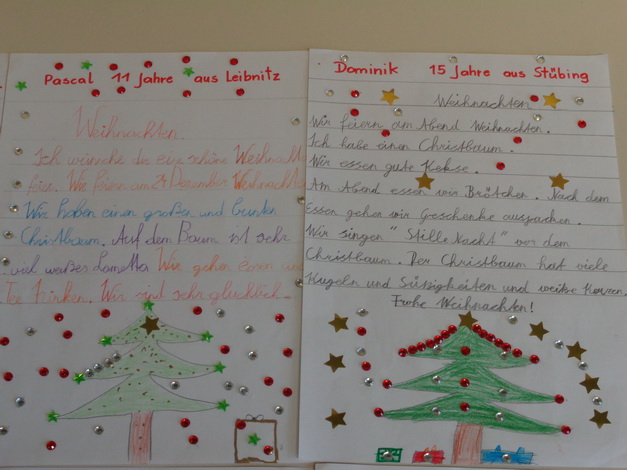 Pascal 11 Jahre aus Leibnitz
Weihnachten.
Ich wünsche dir eine schöne Weihnacht
feier. Wir feiern am 24 Dezember Weihnachte
Wir haben einen großen und bunten
Christbaum. Auf dem Baum ist sehr
viel weißes Lametta Wir gehen essen und
Tee trinken. Wir sind sehr glücklich.
Dominik 15 Jahre aus Stübing
Weihnachten
Wir feiern am Abend Weihnachten.
Ich habe einen Christbaum.
Wir essen gute Kekse.
Am Abend essen wir Brötchen. Nach dem
Essen gehen wir Geschenke auspacken.
Wir singen "Stille Nacht" vor dem
Christbaum. Der Christbaum hat viele
Kugeln und Süßigkeiten und weiße Kerzen.
Frohe Weihnachten!